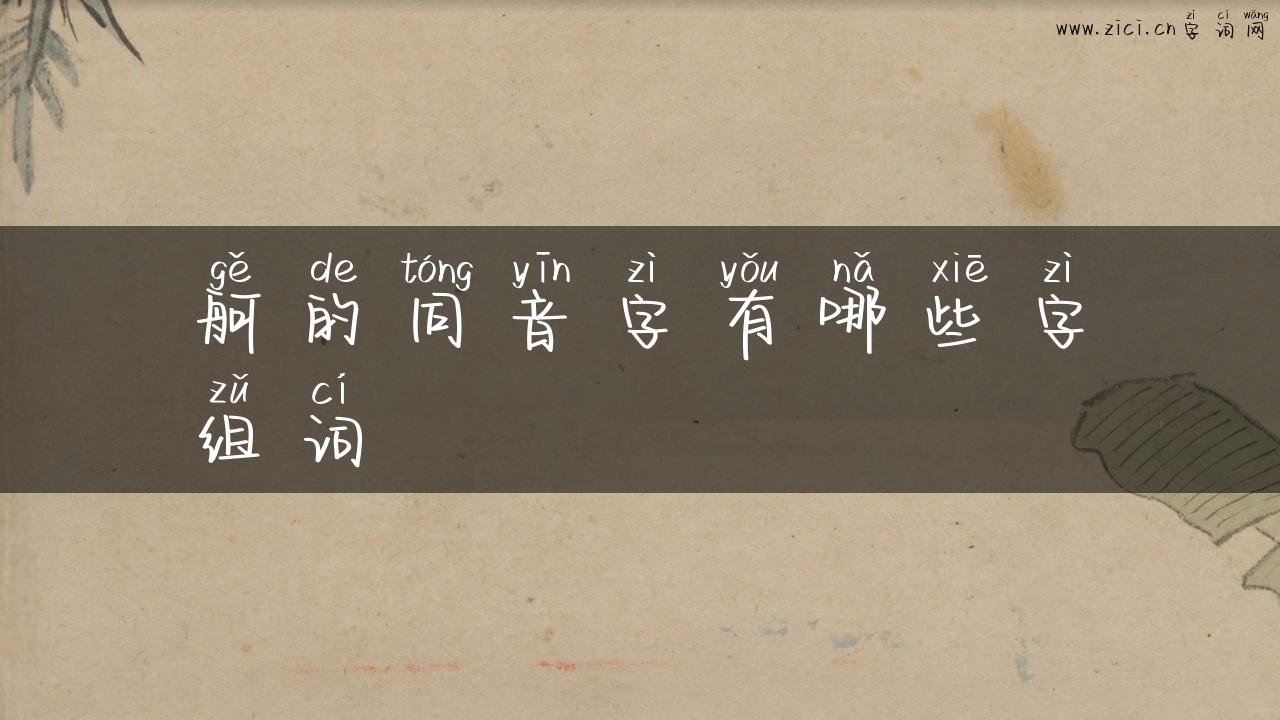 zì cí wǎng
www.zici.cn 字词网
gě de tóng yīn zì yǒu nǎ xiē zì
舸的同音字有哪些字
zǔ cí
组词